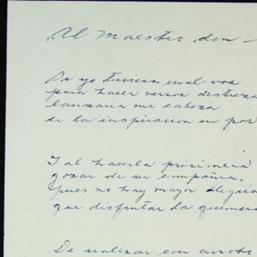 Al Maestro don
Si yo tuviera cual vos
para hacer versos destreza
lanzaria mi cabeza
de la inspiracion en pos
Y al hacerla prisionera
gozar de su compañia,
pues no hay mayor alegria
que disfrutar la quimera
De realizar con